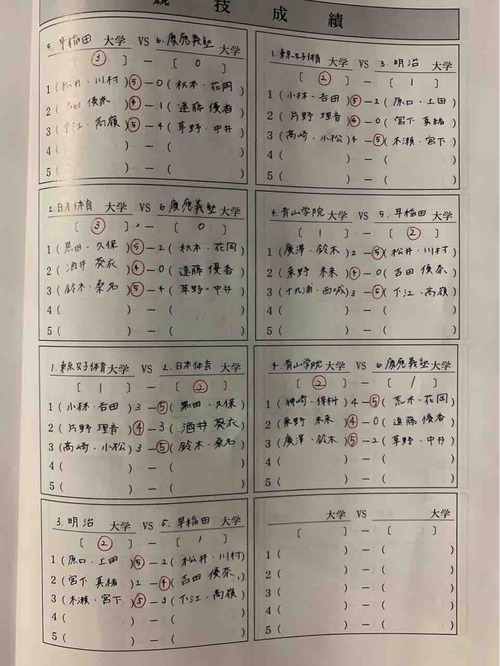 競技成績
5. 早稲田 大学 VS 6. 慶應義塾 大学
[ ③ ] — [ 0 ]
1 (松井・川村) ⑤ — 0 (秋本・花岡)
2 (吉田 優奈) ④ — 1 (遠藤 優香)
3 (下江・高嶺) ⑤ — 4 (草野・中井)
4 ( ) — ( )
5 ( ) — ( )
1. 東京女子体育 大学 VS 3. 明治 大学
[ ② ] — [ 1 ]
1 (小林・吉田) ⑤ — 2 (原口・上田)
2 (片野 理音) ④ — 0 (宮下 真緒)
3 (高崎・小松) 4 — ⑤ (木瀬・宮下)
4 ( ) — ( )
5 ( ) — ( )
2. 日本体育 大学 VS 6. 慶應義塾 大学
[ ③ ] — [ 0 ]
1 (黒田・久保) ⑤ — 2 (秋本・花岡)
2 (酒井 葵衣) ④ — 0 (遠藤 優香)
3 (鈴木・桑名) ⑤ — 4 (草野・中井)
4 ( ) — ( )
5 ( ) — ( )
4. 青山学院 大学 VS 5. 早稲田 大学
[ 1 ] — [ ② ]
1 (廣澤・鈴木) 2 — ⑤ (松井・川村)
2 (桑野 未来) ④ — 0 (吉田 優奈)
3 ( ) 3 — ⑤ (下江・高嶺)
4 ( ) — ( )
5 ( ) — ( )
1. 東京女子体育 大学 VS 2. 日本体育 大学
[ 1 ] — [ ② ]
1 (小林・吉田) 3 — ⑤ (黒田・久保)
2 (片野 理音) ④ — 3 (酒井 葵衣)
3 (高崎・小松) 3 — ⑤ (鈴木・桑名)
4 ( ) — ( )
5 ( ) — ( )
4. 青山学院 大学 VS 6. 慶應義塾 大学
[ ② ] — [ 1 ]
1 (神崎・) 4 — ⑤ (荒木・花岡)
2 (桑野 未来) ④ — 0 (遠藤 優香)
3 (廣澤・鈴木) ⑤ — 2 (草野・中井)
4 ( ) — ( )
5 ( ) — ( )
3. 明治 大学 VS 5. 早稲田 大学
[ ② ] — [ 1 ]
1 (原口・上田) ⑤ — 2 (松井・川村)
2 (宮下 真緒) 2 — ④ (吉田 優奈)
3 (木瀬・宮下) ⑤ — 3 (下江・高嶺)
4 ( ) — ( )
5 ( ) — ( )
大学 VS 大学
[ ] — [ ]
1 ( ) — ( )
2 ( ) — ( )
3 ( ) — ( )
4 ( ) — ( )
5 ( ) — ( )